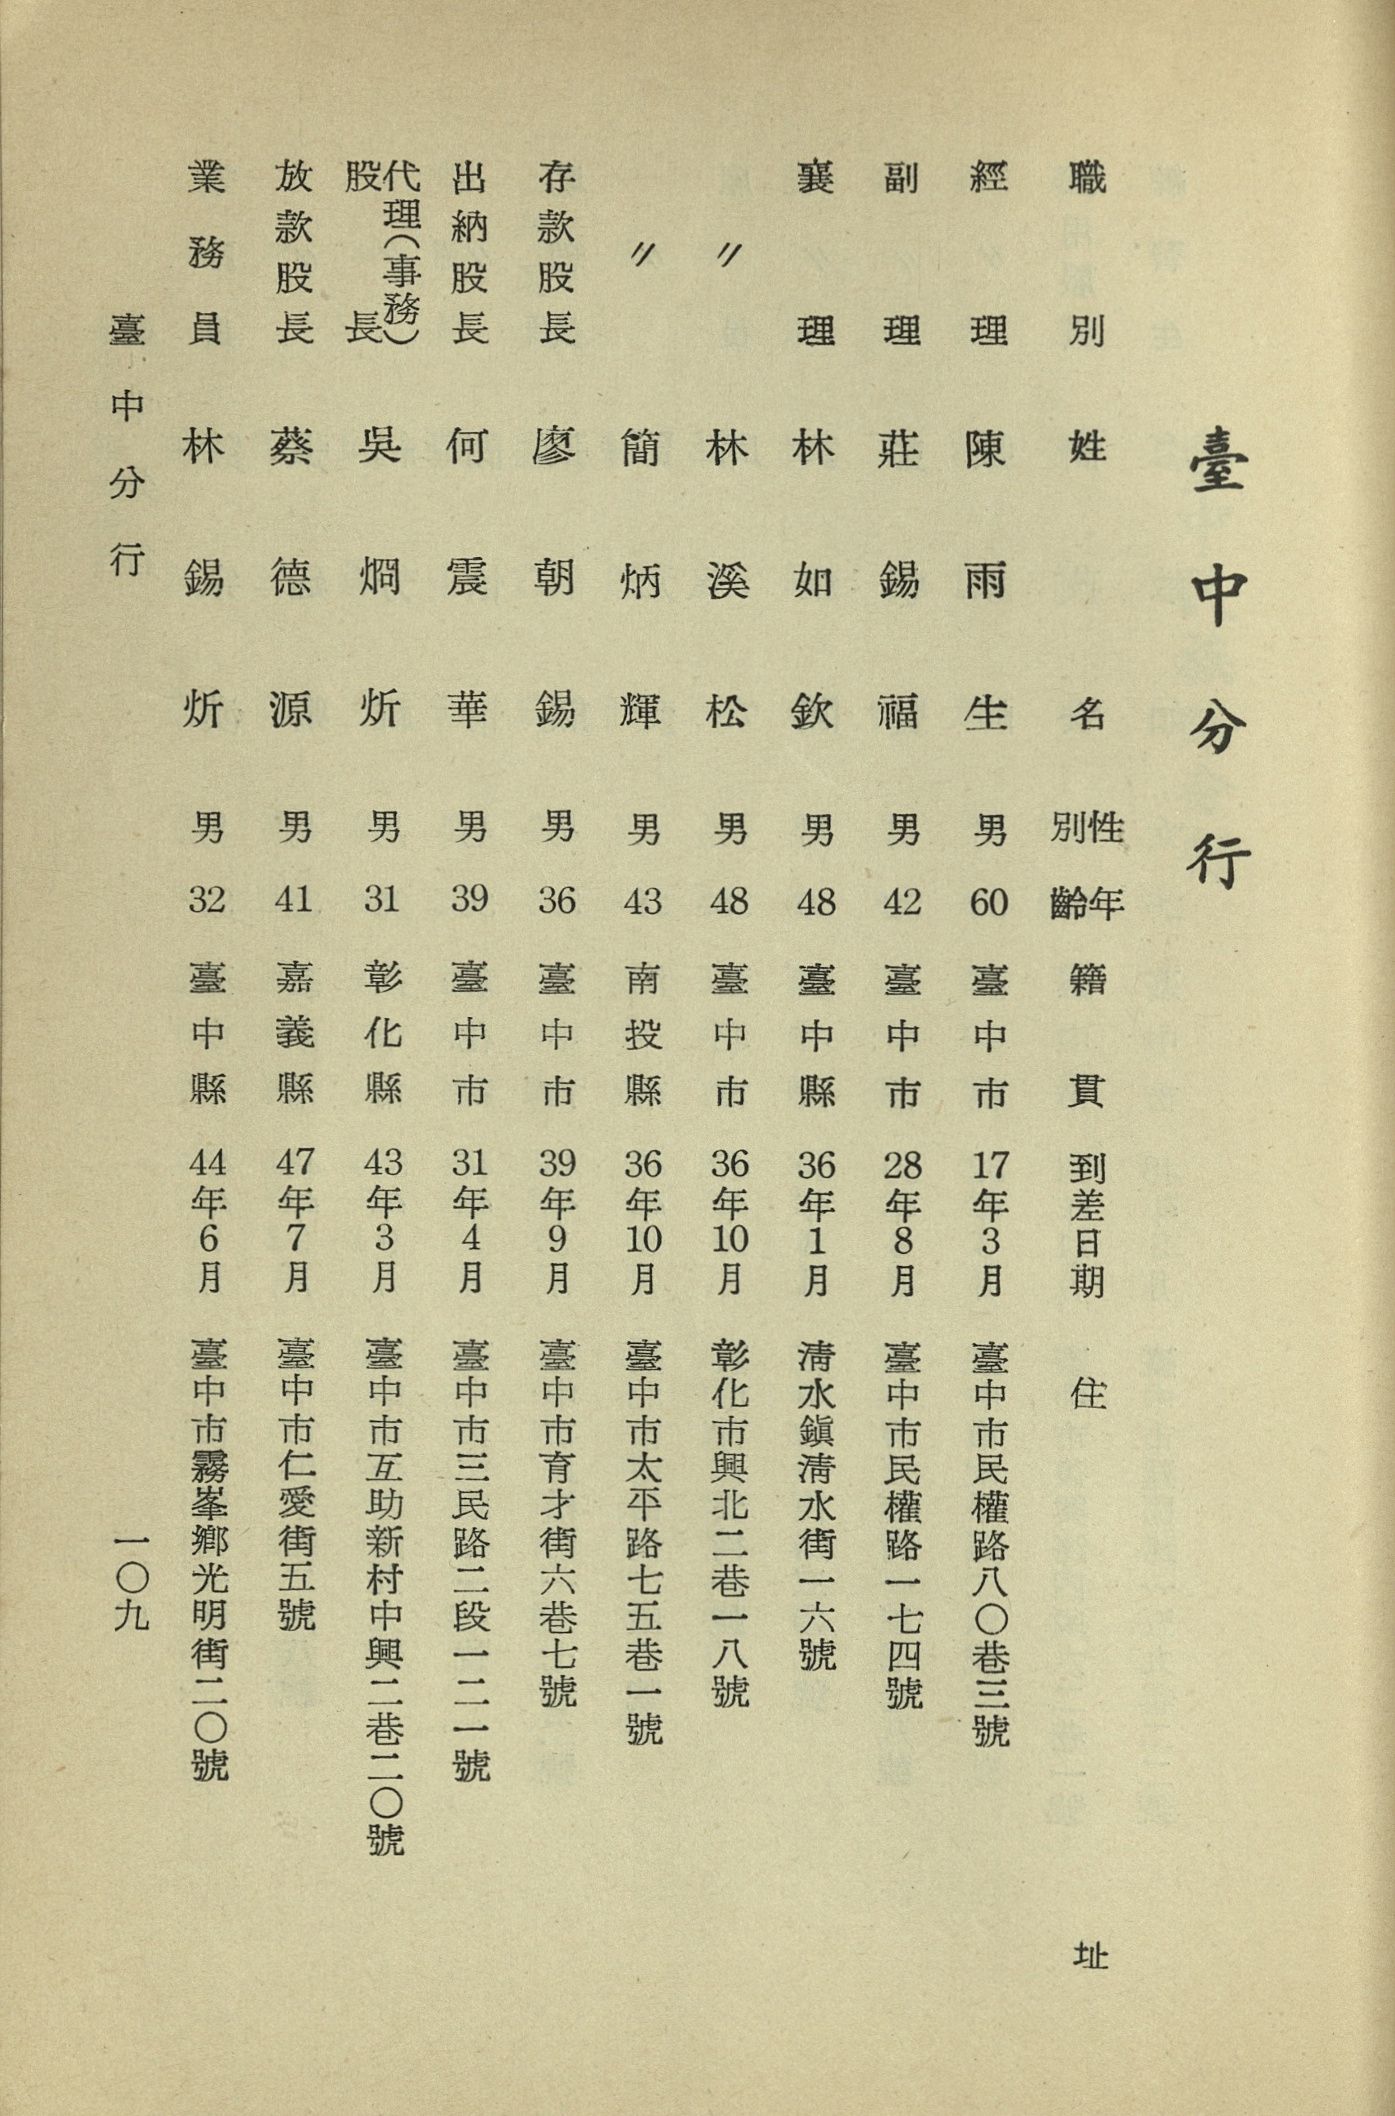 臺中分行
職別 姓名 性別 年齡 籍貫 到差日期 住址
經理 陳雨生 男 60 臺中市 17年3月 臺中市民權路八〇巷三號
副理 莊錫福 男 42 臺中市 28年8月 臺中市民權路一七四號
襄理 林如欽 男 48 臺中縣 36年1月 清水鎭清水街一六號
〃 林溪松 男 48 臺中市 36年10月 彰化市興北二巷一八號
〃 簡炳輝 男 43 南投縣 36年10月 臺中市太平路七五巷一號
存款股長 廖朝錫 男 36 臺中市 39年9月 臺中市育才街六巷七號
出納股長 何震華 男 39 臺中市 31年4月 臺中市三民路二段一二一號
代理(事務)股長 吳烱炘 男 31 彰化縣 43年3月 臺中市互助新村中興二巷二〇號
放款股長 蔡德源 男 41 嘉義縣 47年7月 臺中市仁愛街五號
業務員 林錫炘 男 32 臺中縣 44年6月 臺中市霧峯鄉光明街二〇號
臺中分行 一〇九